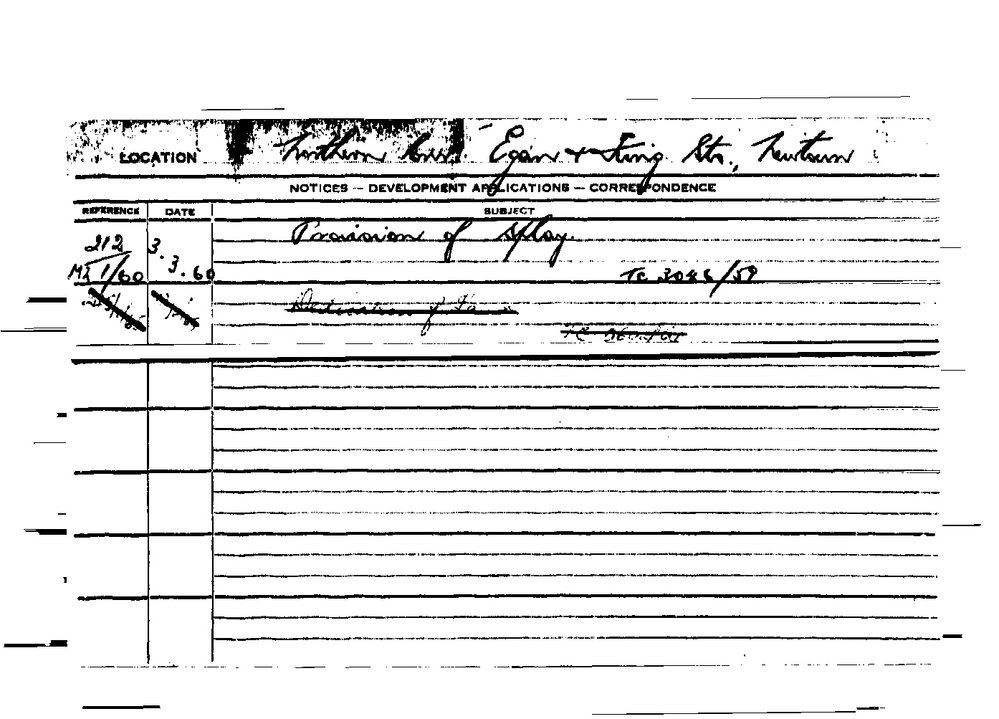 LOCATION Northern Cnr. Egan & King Sts., Newtown
NOTICES — DEVELOPMENT APPLICATIONS — CORRESPONDENCE
REFERENCE DATE SUBJECT
212 3.3.60 Provision of Splay.
1/60 TC 3086/59
Dedication of
TC